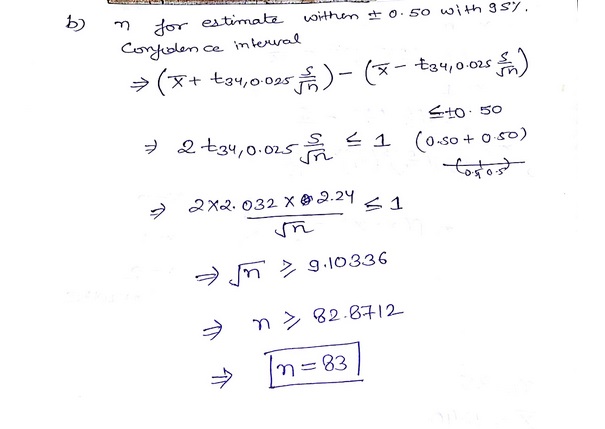 b) n for estimate within ± 0.50 with 95%.
Confidence interval
⇒ (x̄ + t34,0.025 s/√n) − (x̄ − t34,0.025 s/√n)
≤ ±0.50
⇒ 2 t34,0.025 s/√n ≤ 1 (0.50 + 0.50)
⇒ 2×2.032 × 2.24/√n ≤ 1
⇒ √n ≥ 9.10336
⇒ n ≥ 82.8712
⇒ n = 83